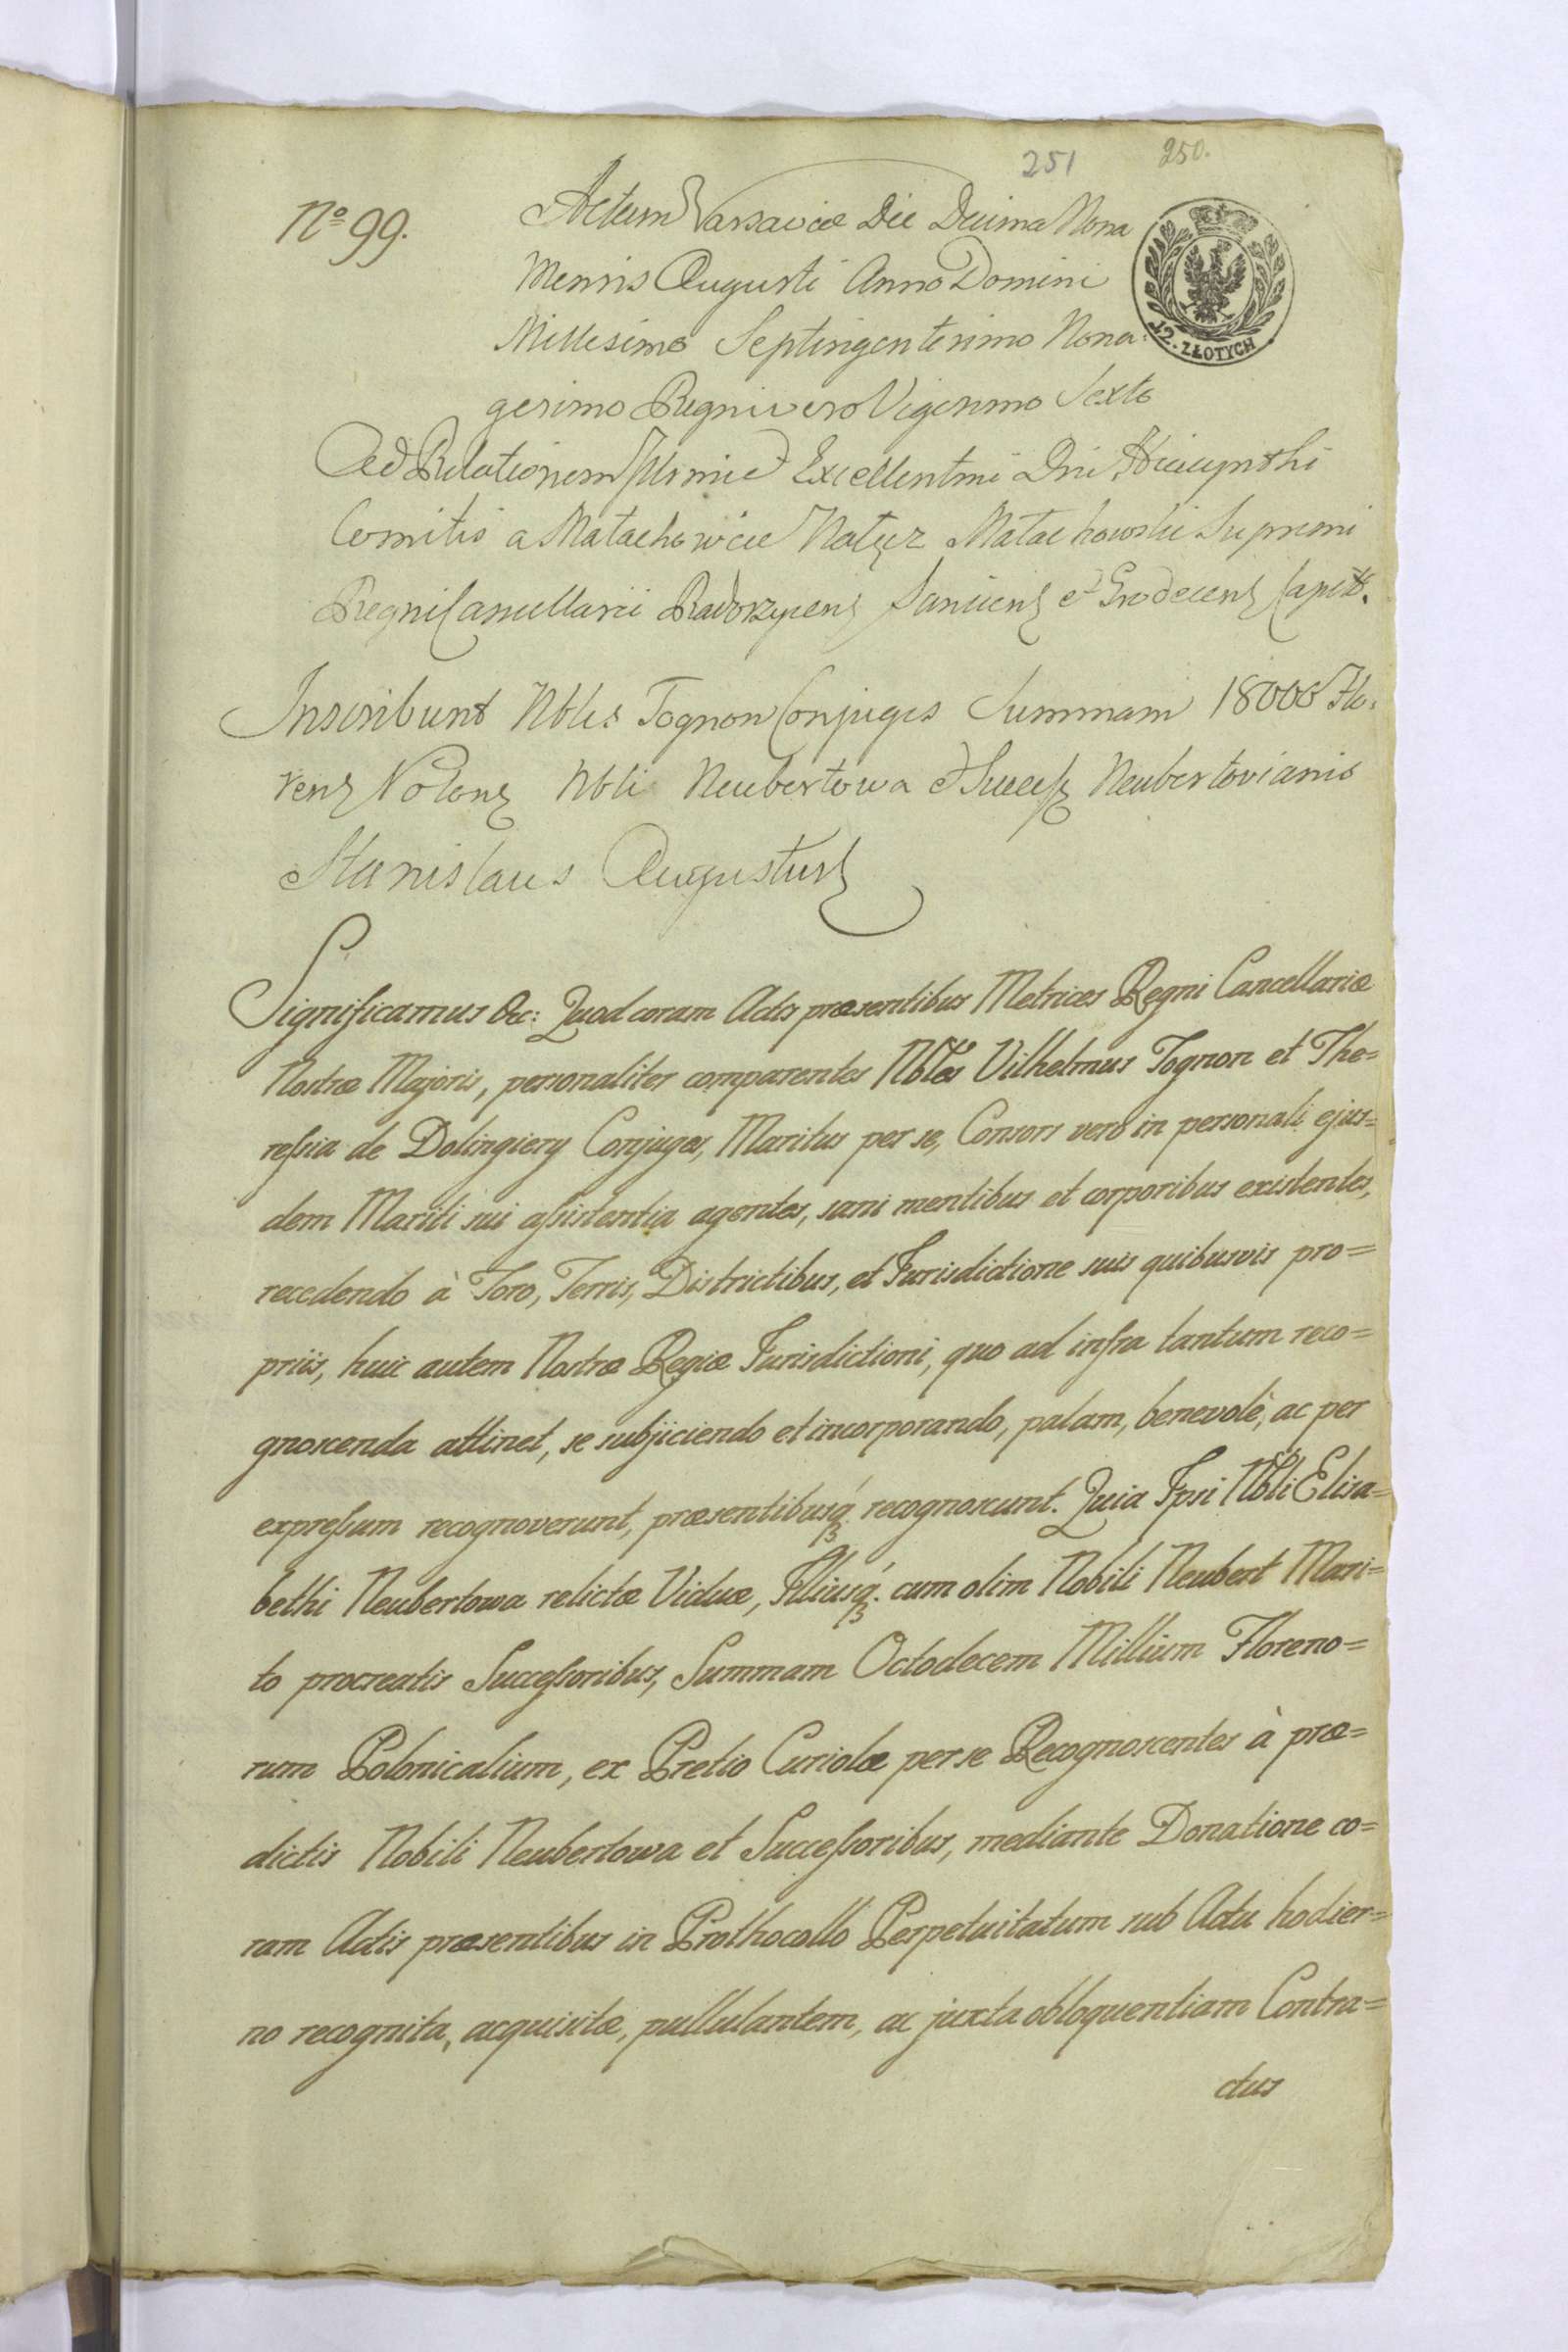 251 250.
Nº 99.
Actum Varsaviæ Die Decima Nona
Mensis Augusti Anno Domini
Millesimo Septingentesimo Nona:
12. ZŁOTYCH
gesimo Regni vero Vigesimo Sexto
Ad Relationem Illsmi et Excellentmi Dni Hiacynthi
Comitis a Małachowice Nałęcz Małachowski Supremi
Regni Cancellarii Radoszycens Sanicens et Grodecens Capit.
Inscribunt Nbles Tognon Conjuges Summam 18000 Flo:
rens Polons Nbli Neubertowa et Success Neubertovianis
Stanislaus Augustus
Significamus &c: Quod coram Actis præsentibus Metrices Regni Cancellariæ
Nostræ Majoris, personaliter comparentes Nbles Vilhelmus Tognon et The=
ressia de Dolingiery Conjuges, Maritus per se, Consors vero in personali ejus=
dem Mariti sui assistentia agentes, sani mentibus et corporibus existentes,
recedendo à Foro, Terris, Districtibus, et Jurisdictione suis quibusvis pro=
priis, huic autem Nostræ Regiæ Jurisdictioni, quo ad infra tantum reco=
gnoscenda attinet, se subjiciendo et incorporando, palam, benevolè, ac per
expressum recognoverunt, præsentibusq́ recognoscunt. Quia Ipsi Nbli Elisa=
bethi Neubertowa relictæ Viduæ, Illiusq́. cum olim Nobili Neubert Mari=
to procreatis Successoribus, Summam Octodecem Millium Floreno=
rum Polonicalium, ex Pretio Curiolæ per se Recognoscentes à præ=
dictis Nobili Neubertowa et Successoribus, mediante Donatione co=
ram Actis præsentibus in Prothocollo Perpetuitatum sub Actu hodier=
no recognita, acquisitæ, pullulantem, ac juxta obloquentiam Contra=
ctus